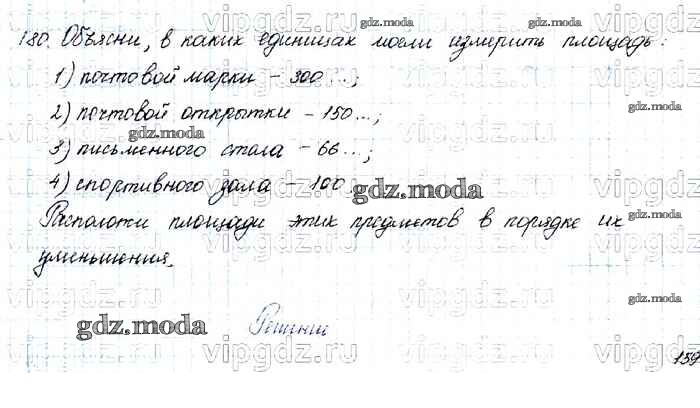 180. Объясни, в каких единицах могли измерить площадь:
1) почтовой марки – 300 ...;
2) почтовой открытки – 150 ...;
3) письменного стола – 66 ...;
4) спортивного зала – 100
Расположи площади этих предметов в порядке их
уменьшения.
Решение
159
gdz.moda
gdz.moda
gdz.moda
gdz.moda
gdz.moda
gdz.moda
gdz.moda
gdz.moda
vipgdz.ru
vipgdz.ru
vipgdz.ru